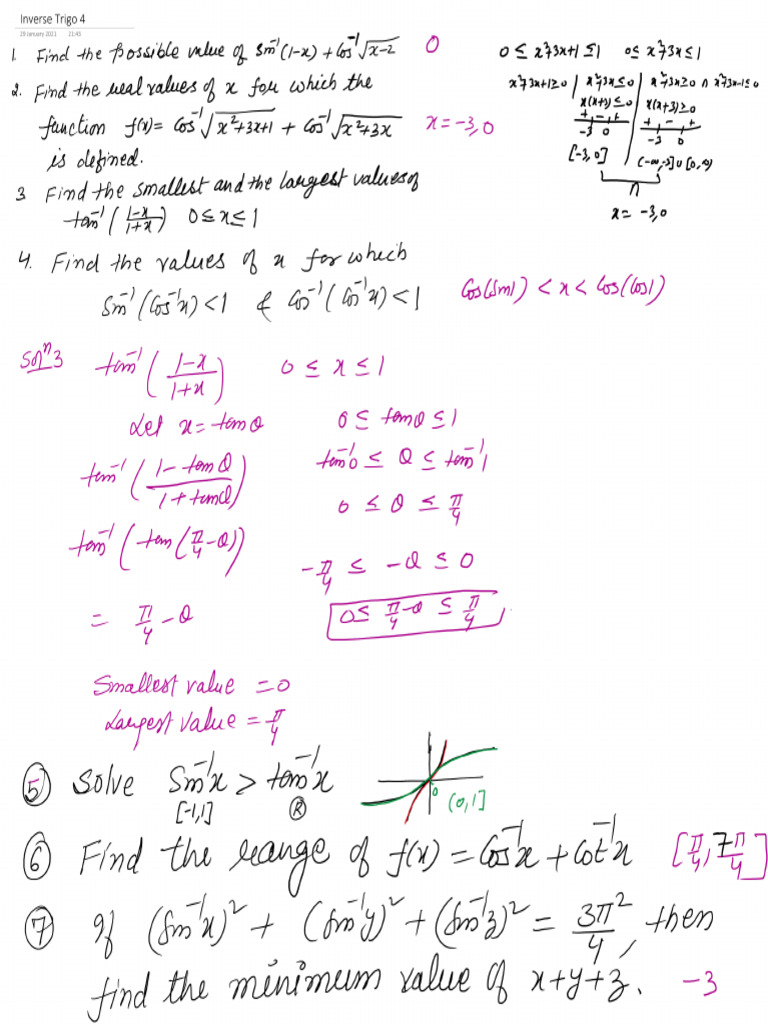 Inverse Trigo 4
29 January 2021 21:45
1. Find the possible value of Sin⁻¹(1-x) + Cos⁻¹√(x-2) 0
2. Find the real values of x for which the
function f(x) = Cos⁻¹√(x²+3x+1) + Cos⁻¹√(x²+3x) x = -3, 0
is defined.
0 ≤ x²+3x+1 ≤ 1 0 ≤ x²+3x ≤ 1
x²+3x+1 ≥ 0 | x²+3x ≤ 0 | x²+3x ≥ 0 ∩ x²+3x-1 ≤ 0
x(x+3) ≤ 0 | x(x+3) ≥ 0
+ - + + - +
-3 0 -3 0
[-3, 0] (-∞, -3] ∪ [0, ∞)
∩
x = -3, 0
3. Find the smallest and the largest values of
tan⁻¹((1-x)/(1+x)) 0 ≤ x ≤ 1
4. Find the values of x for which
Sin⁻¹(Cos⁻¹x) < 1 & Cos⁻¹(Cos⁻¹x) < 1 Cos(Sin1) < x < Cos(Cos1)
Solⁿ 3 tan⁻¹((1-x)/(1+x)) 0 ≤ x ≤ 1
Let x = tanθ 0 ≤ tanθ ≤ 1
tan⁻¹((1-tanθ)/(1+tanθ)) tan⁻¹0 ≤ θ ≤ tan⁻¹1
0 ≤ θ ≤ π/4
tan⁻¹(tan(π/4-θ))
-π/4 ≤ -θ ≤ 0
= π/4 - θ 0 ≤ π/4-θ ≤ π/4
Smallest value = 0
Largest value = π/4
5 Solve Sin⁻¹x > tan⁻¹x
[-1,1] R 0 (0,1]
6 Find the range of f(x) = Cos⁻¹x + Cot⁻¹x [π/4, 7π/4]
7 If (Sin⁻¹x)² + (Sin⁻¹y)² + (Sin⁻¹z)² = 3π²/4, then
find the minimum value of x+y+z. -3